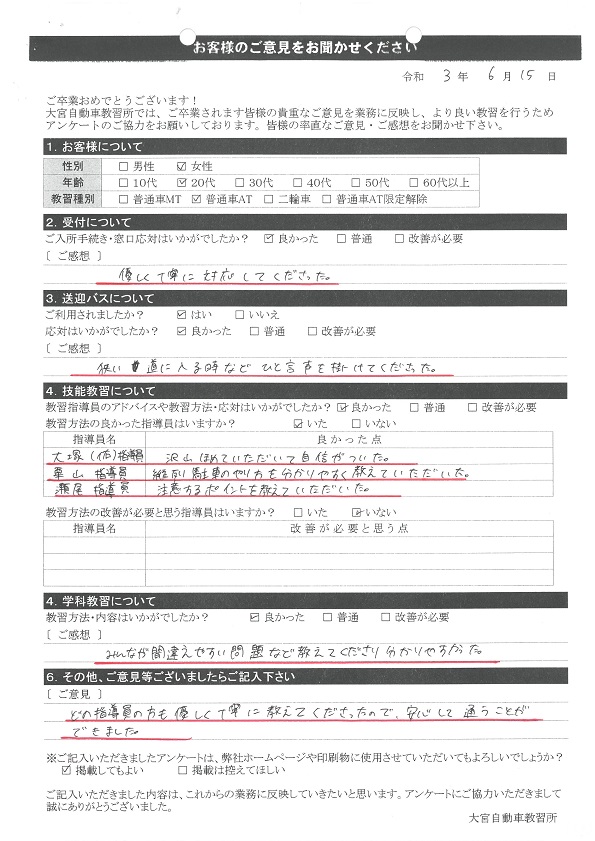 お客様のご意見をお聞かせください
令和 3 年 6 月 15 日
ご卒業おめでとうございます！
大宮自動車教習所では、ご卒業されます皆様の貴重なご意見を業務に反映し、より良い教習を行うため
アンケートのご協力をお願いしております。皆様の率直なご意見・ご感想をお聞かせ下さい。
1. お客様について
性別 □ 男性 ☑ 女性
年齢 □ 10代 ☑ 20代 □ 30代 □ 40代 □ 50代 □ 60代以上
教習種別 □ 普通車MT ☑ 普通車AT □ 二輪車 □ 普通車AT限定解除
2. 受付について
ご入所手続き・窓口応対はいかがでしたか？ ☑ 良かった □ 普通 □ 改善が必要
〔 ご感想 〕
優しく丁寧に対応してくださった。
3. 送迎バスについて
ご利用されましたか？ ☑ はい □ いいえ
応対はいかがでしたか？ ☑ 良かった □ 普通 □ 改善が必要
〔 ご感想 〕
狭い道に入る時などひと言声を掛けてくださった。
4. 技能教習について
教習指導員のアドバイスや教習方法・応対はいかがでしたか？ ☑ 良かった □ 普通 □ 改善が必要
教習方法の良かった指導員はいますか？ ☑ いた □ いない
指導員名 良かった点
大塚(佑)指導員 沢山ほめていただいて自信がついた。
栗山 指導員 縦列駐車のやり方を分かりやすく教えていただいた。
瀬尾 指導員 注意するポイントを教えていただいた。
教習方法の改善が必要と思う指導員はいますか？ □ いた ☑ いない
指導員名 改善が必要と思う点
4. 学科教習について
教習方法・内容はいかがでしたか？ ☑ 良かった □ 普通 □ 改善が必要
〔 ご感想 〕
みんなが間違えやすい問題など教えてくださり分かりやすかった。
6. その他、ご意見等ございましたらご記入下さい
〔 ご意見 〕
どの指導員の方も優しく丁寧に教えてくださったので、安心して通うことが
できました。
※ご記入いただきましたアンケートは、弊社ホームページや印刷物に使用させていただいてもよろしいでしょうか？
☑ 掲載してもよい □ 掲載は控えてほしい
ご記入いただきました内容は、これからの業務に反映していきたいと思います。アンケートにご協力いただきまして
誠にありがとうございました。
大宮自動車教習所